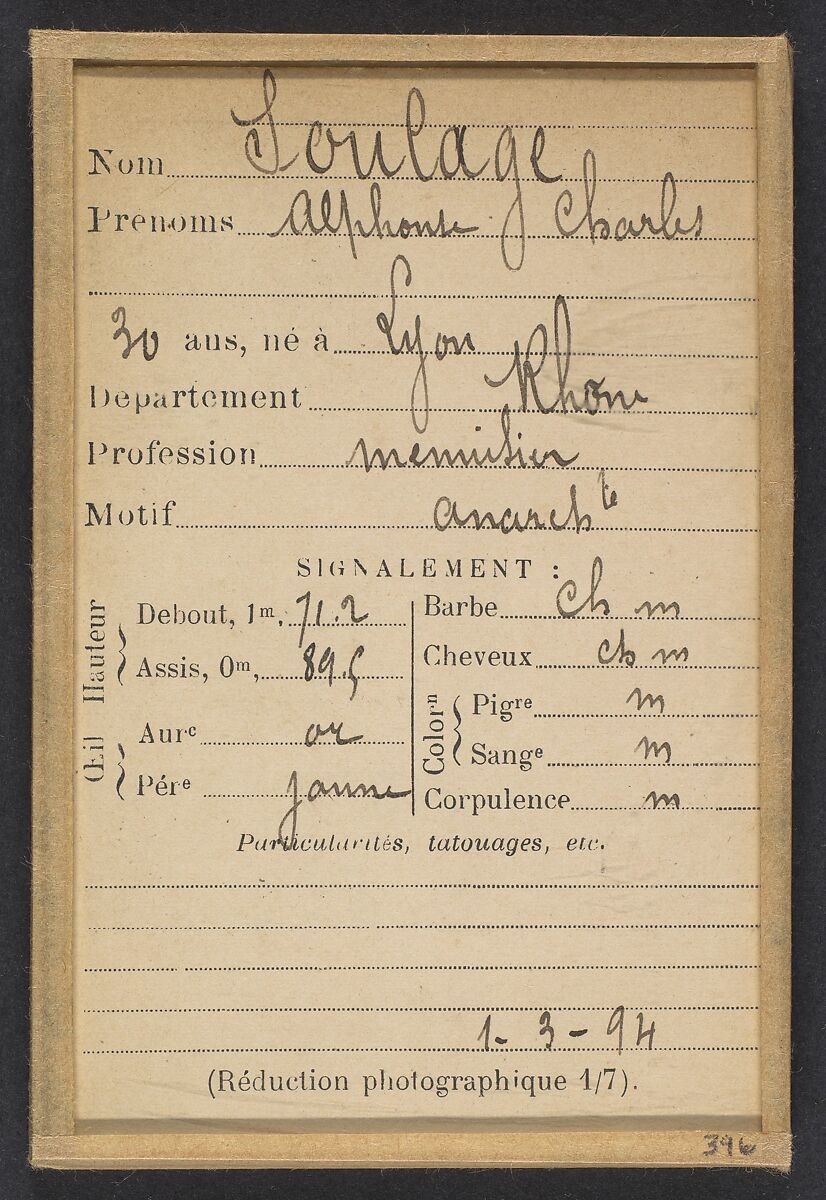 Nom Soulage
Prénoms Alphonse Charles
30 ans, né à Lyon
Département Rhône
Profession menuisier
Motif anarch te
SIGNALEMENT :
Hauteur
Debout, 1m, 71.2
Assis, 0m, 89.5
Œil
Aurᵉ or
Pérᵉ jaune
Barbe ch m
Cheveux ch m
Colorⁿ
Pigʳᵉ m
Sangᵉ m
Corpulence m
Particularités, tatouages, etc.
1-3-94
(Réduction photographique 1/7).
396